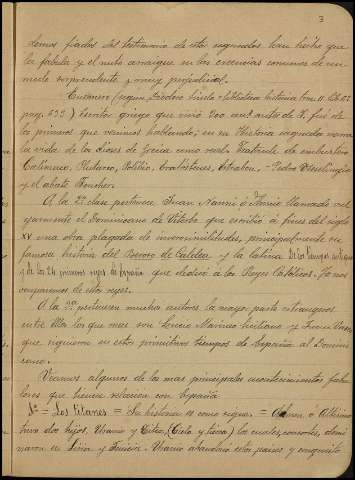 3
demas fiados del testimonio de estos segundos han hecho que
la fabula y el mito arraigue en las creencias comunes de un
modo sorprendente y muy perjudicial.
Evemero (segun Diodoro Siculo
pag. 633) Escritor griego que vivió 300 ants. de J. fué de
los primeros que vamos hablando; en su Historia sagrada narra
la vida de los dioses de Grecia como real. Tratanle de embustero
Calimaco, Plutarco, Polibio, Eratostenes, Estrabon, Pedro
y el abate Foucher.
A la 2ª clase pertenece Juan Nanni ó Annio llamado
el Dominicano de Viterbo que escribió á fines del siglo
XV una obra plagada de inverosimilitudes, principalmente su
famosa historia del Beroso de Caldea y la latina De los
y de los 24 primeros reyes de España que dedicó á los Reyes Católicos. Ya nos
ocuparemos de estos reyes.
A la 3ª pertenecen muchos autores la mayor parte extrangeros
entre ellos los que mas son Lucio Marineo Siculo y Juan
que siguieron en estos primitivos tiempos de España al Domini
cano.
Veamos algunos de los mas principales acontecimientos fabu
losos que tienen relacion con España
1º = Los titanes = Su historia es como sigue. = ó Altisimo
tuvo dos hijos, Urano y Titea, (Cielo y tierra) los cuales, consortes, domi
naron en Siria y Fenicia. Urano abandonó este pais y conquistó